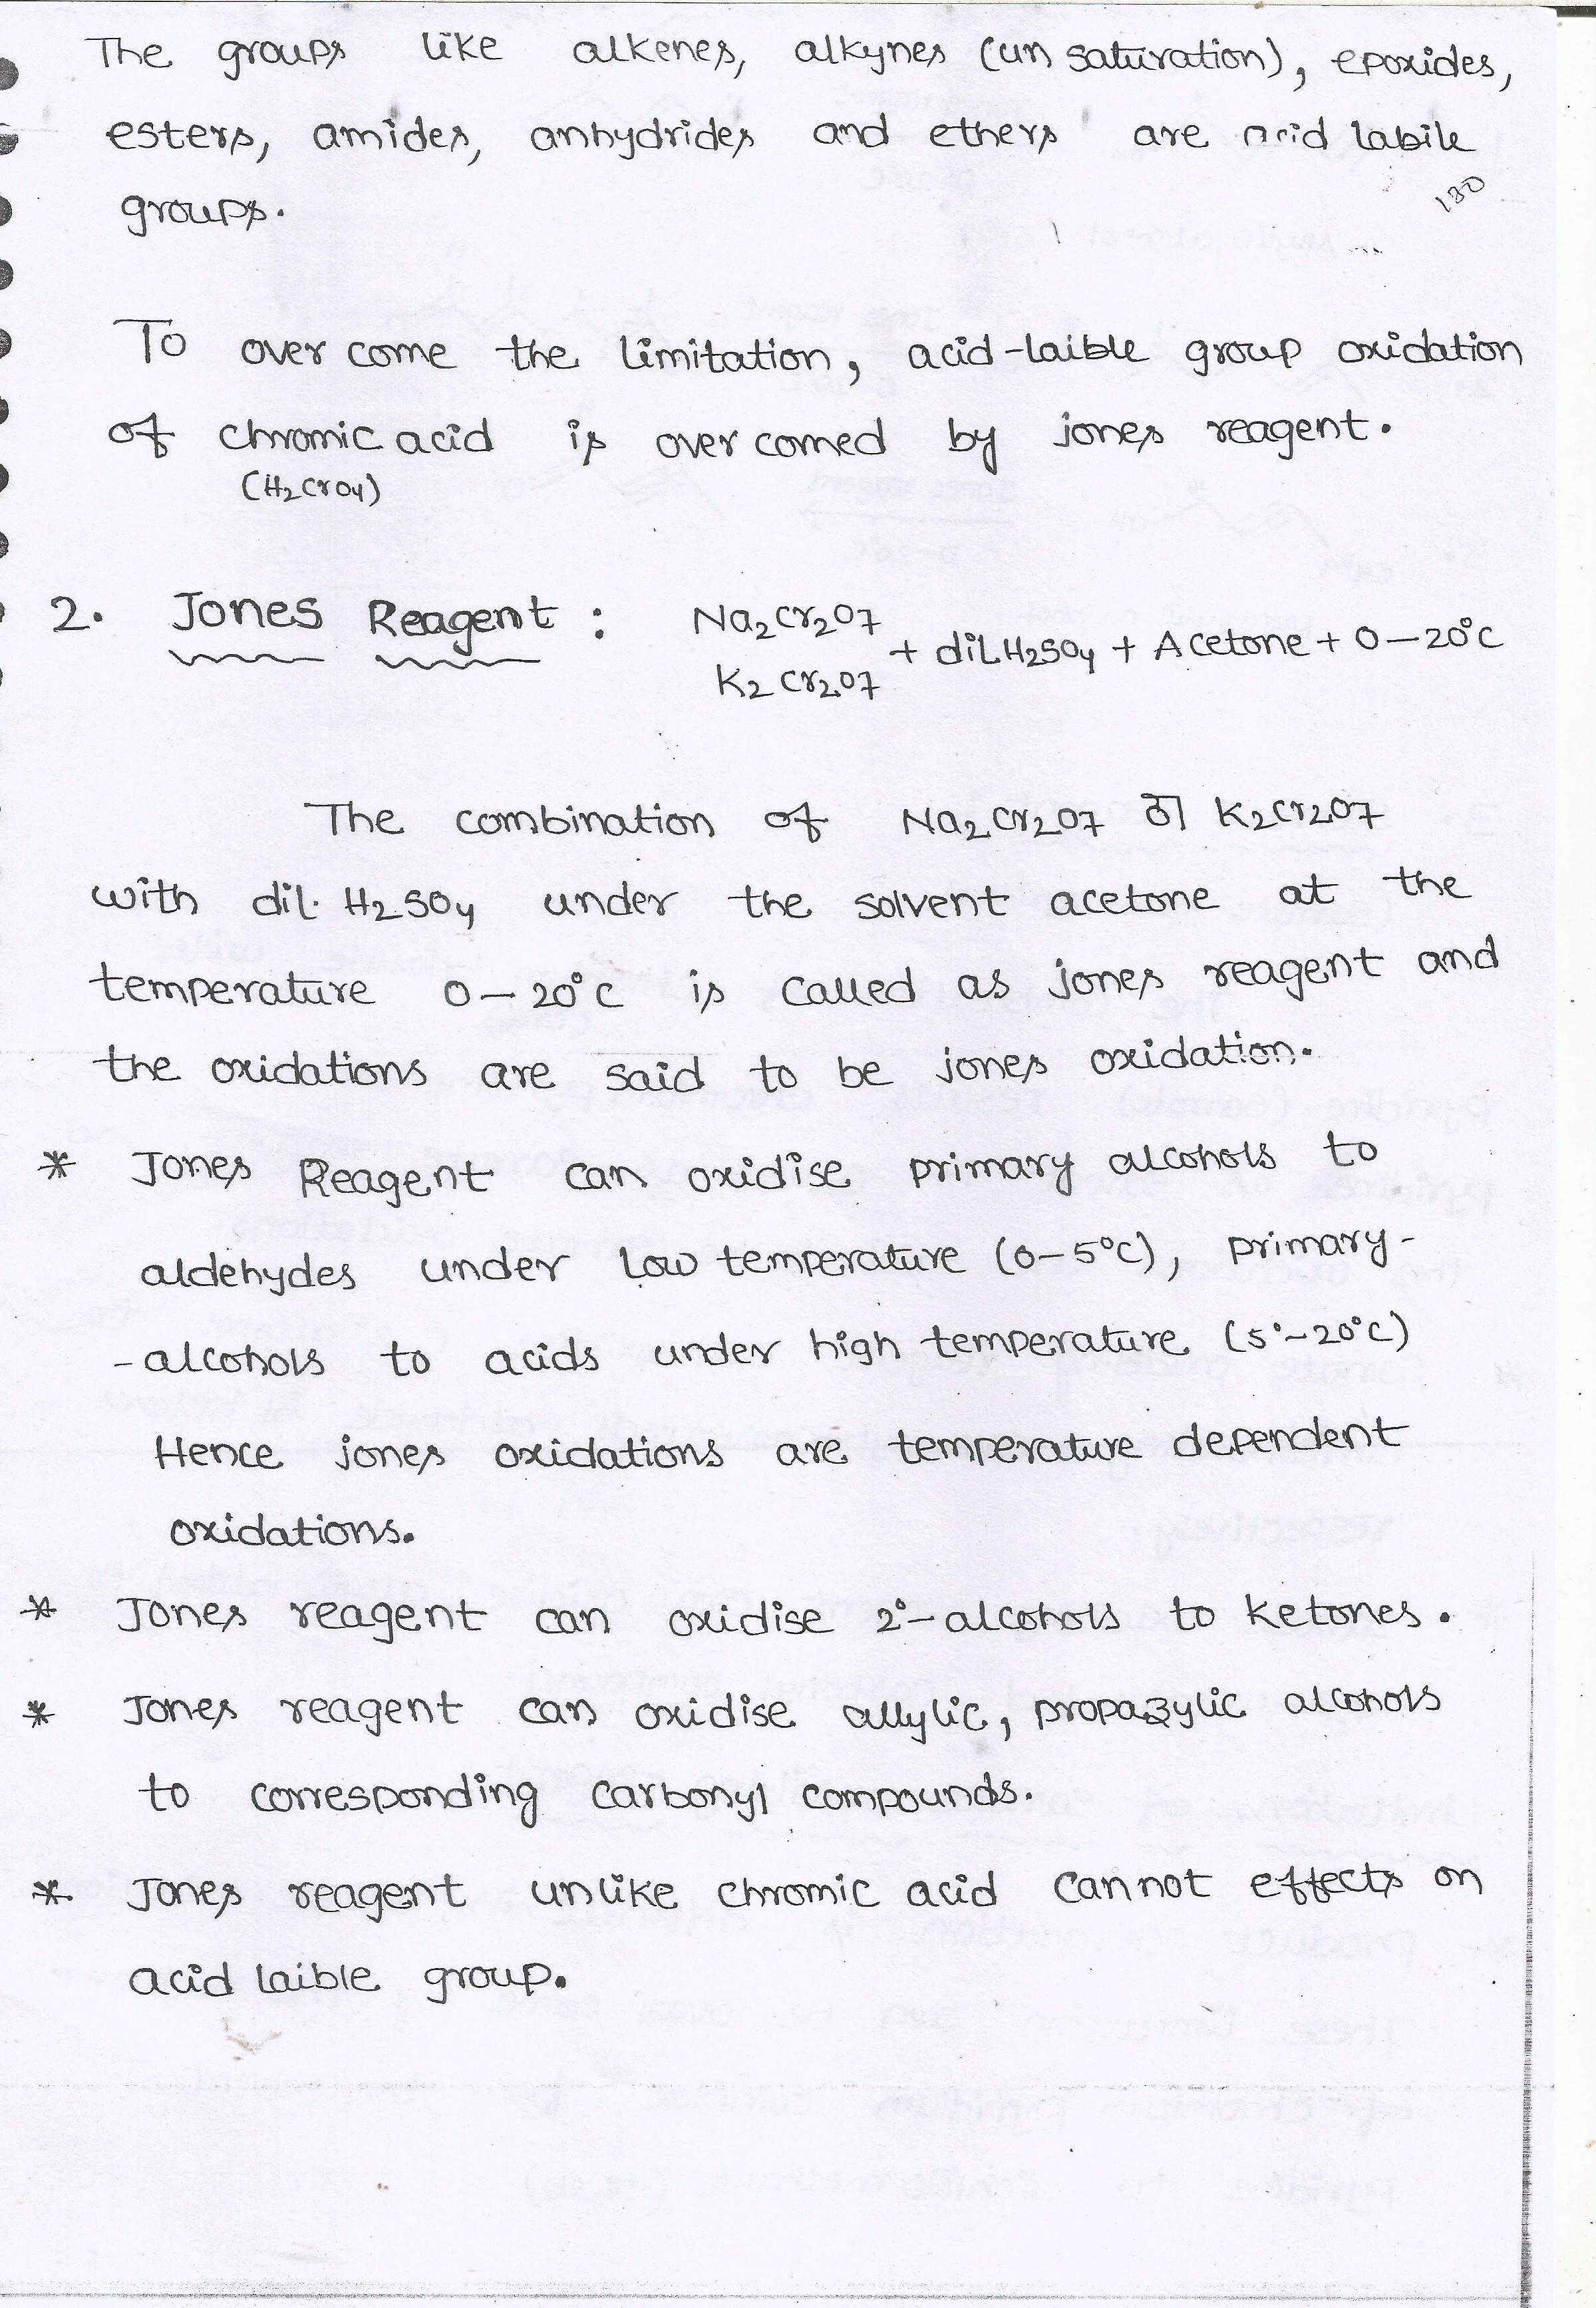 The groups like alkenes, alkynes (un saturation), epoxides,
esters, amides, anhydrides and ethers are acid labile
groups.
130
To over come the limitation, acid-laible group oxidation
of chromic acid is over comed by jones reagent.
(H2CrO4)
2. Jones Reagent : Na2Cr2O7
K2Cr2O7 + dil H2SO4 + Acetone + 0-20°C
The combination of Na2Cr2O7 or K2Cr2O7
with dil. H2SO4 under the solvent acetone at the
temperature 0-20°C is called as jones reagent and
the oxidations are said to be jones oxidation.
* Jones Reagent can oxidise primary alcohols to
aldehydes under low temperature (0-5°C), primary-
-alcohols to acids under high temperature (5°-20°C)
Hence jones oxidations are temperature dependent
oxidations.
* Jones reagent can oxidise 2°-alcohols to ketones.
* Jones reagent can oxidise allylic, propazylic alcohols
to corresponding carbonyl compounds.
* Jones reagent unlike chromic acid cannot effects on
acid laible group.